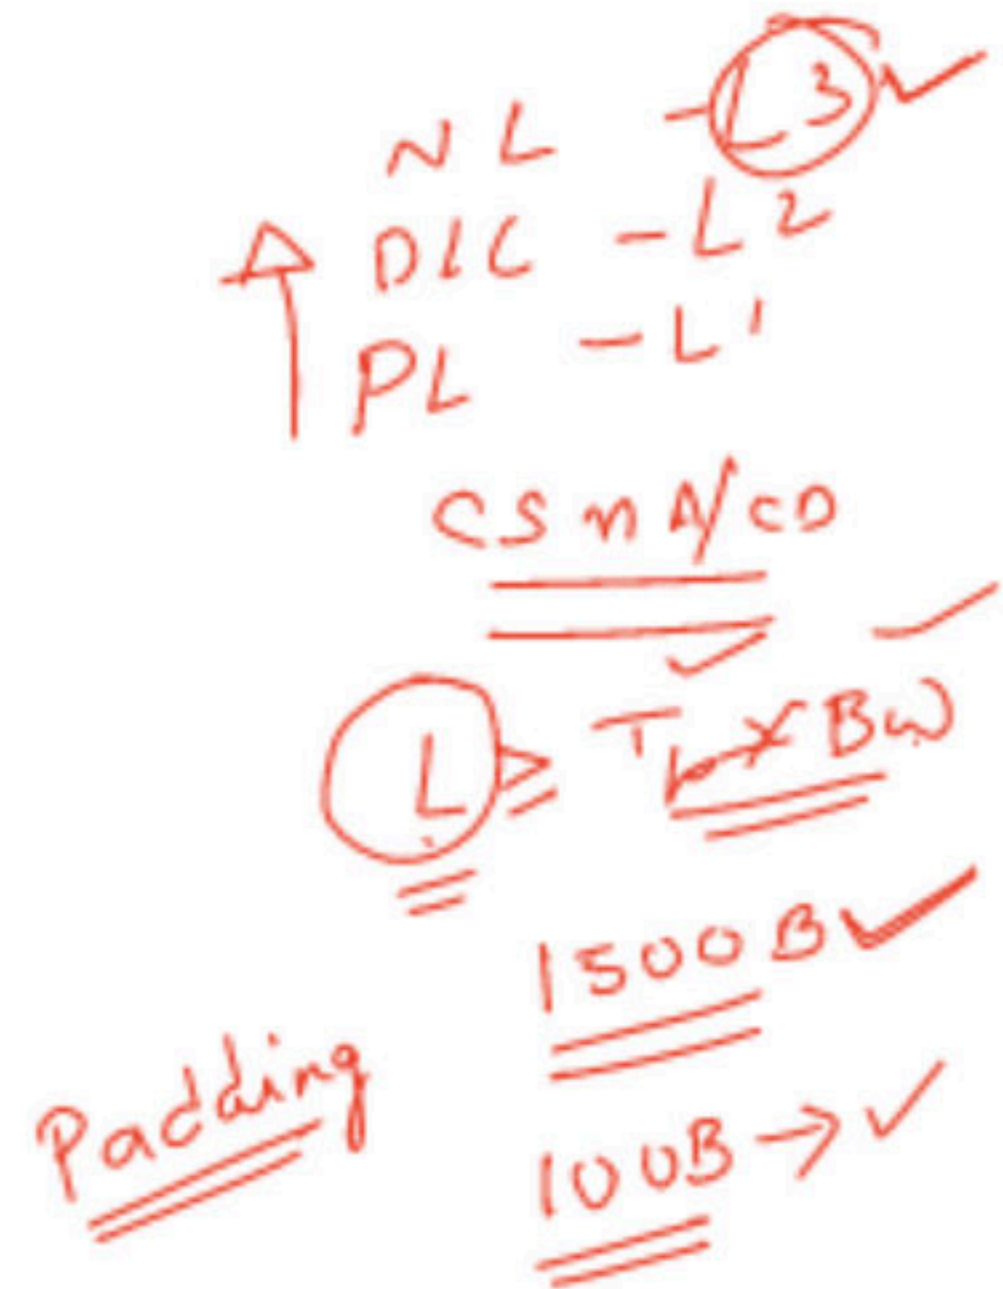 NL - L3 ✓
DLC - L2
PL - L1
CSMA/CD
L > Tp × BW
1500B ✓
Padding
100B → ✓